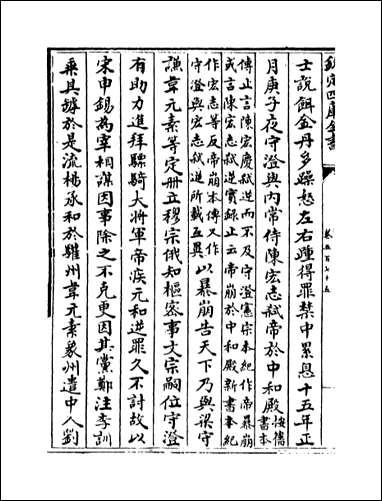 欽定四庫全書
卷五百七十五
士說餌金丹多躁怒左右踵得罪禁中累恐十五年正
月庚子夜守澄與內常侍陳宏志弑帝於中和殿按舊書本
傳止言陳宏慶弑逆而不及守澄憲宗本紀作帝暴崩
或言陳宏志弑逆實錄止云帝崩於中和殿新書本紀
作宏志等反帝崩本傳又作守澄與宏志弑逆所載互異以暴崩告天下乃與梁守
謙韋元素等定冊立穆宗俄知樞密事文宗嗣位守澄
有助力進拜驃騎大將軍帝疾元和逆罪久不討故以
宋申錫為宰相謀因事除之不克更因其黨鄭注李訓
乘其罅於是流楊承和於驩州韋元素象州遣中人劉